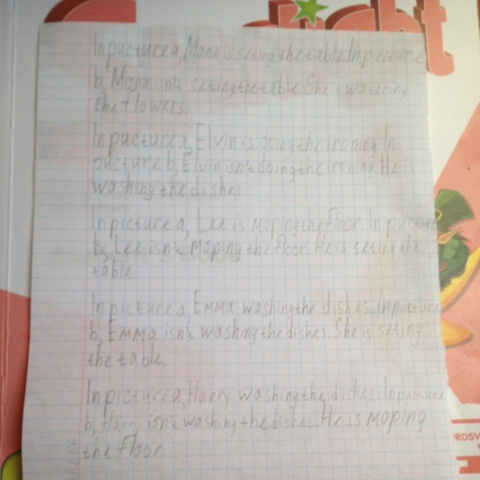 In pucture a, Mona is seting the table. In pucture
b, Mona isn't seting the table. She is watering
the flowers.
In pucture a, Elvin is doing the ironing. In
pucture b, Elvin isn't doing the ironing. He is
washing the dishes
In picture a, Lee is moping the floor. In pucture
b, Lee isn't moping the floor. He is seting the
table
In picture a, Emma washing the dishes. In pucture
b, Emma isn't washing the dishes. She is seting
the table.
In picture a, Harry washing the dishes. In pucture
b, Harry isn't washing the dishes. He is moping
the floor.